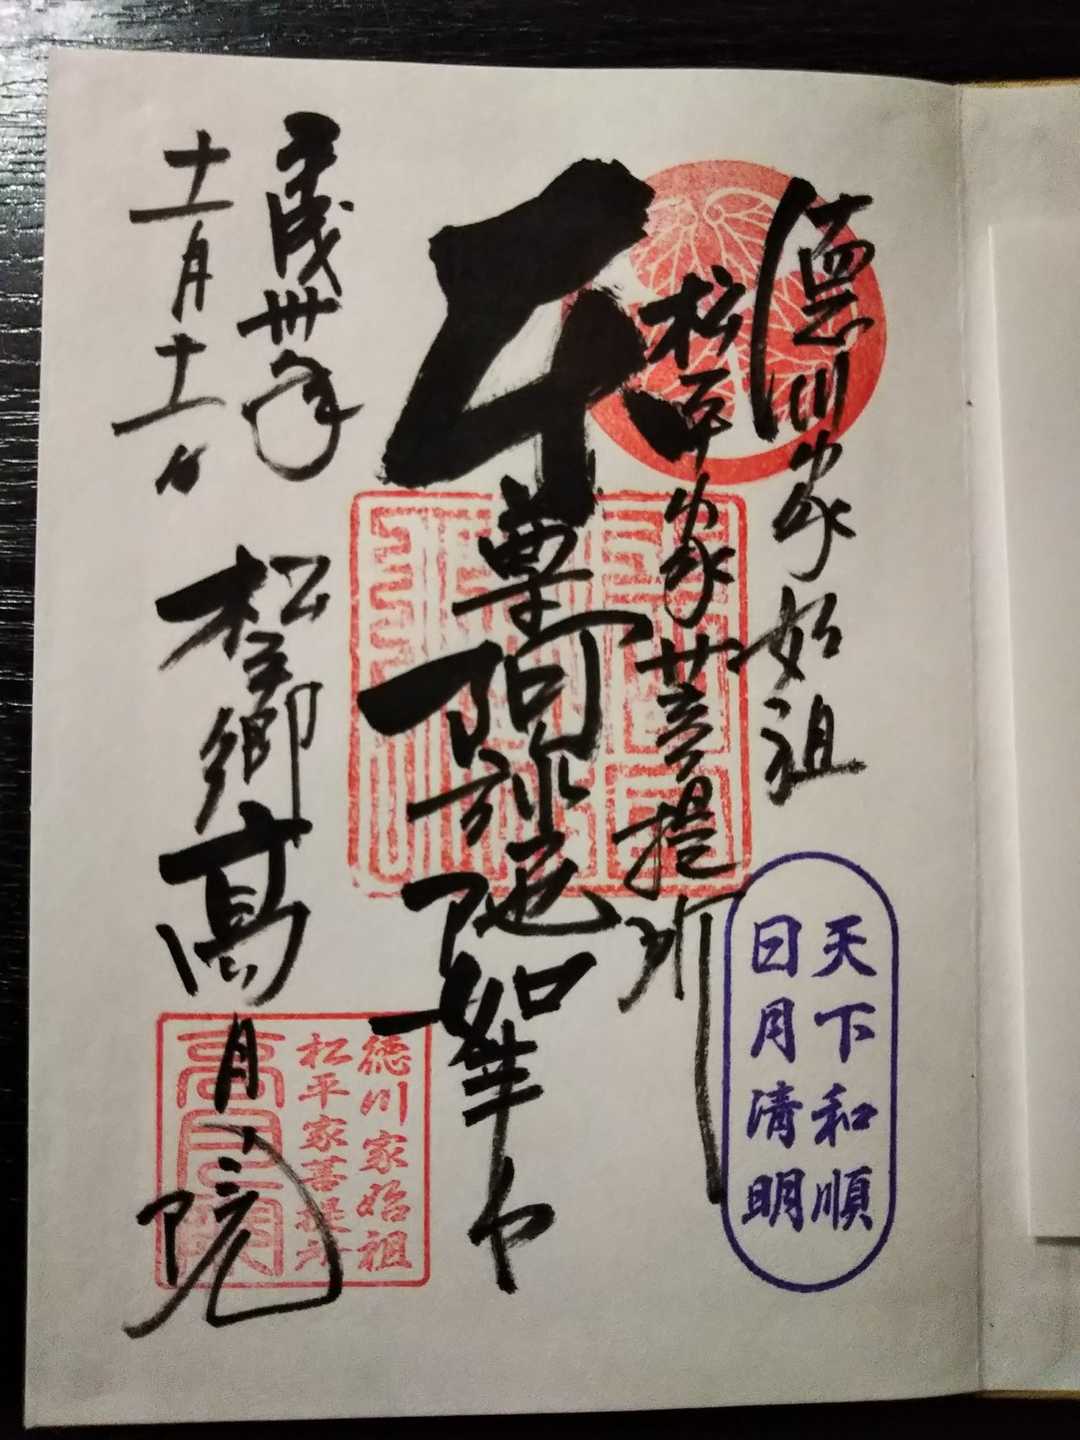 徳川家始祖
松平家菩提所
本尊阿弥陀如来
平成卅年
十一月十一日
松平郷高月院
天下和順
日月清明
徳川家始祖
松平家菩提所
高月院